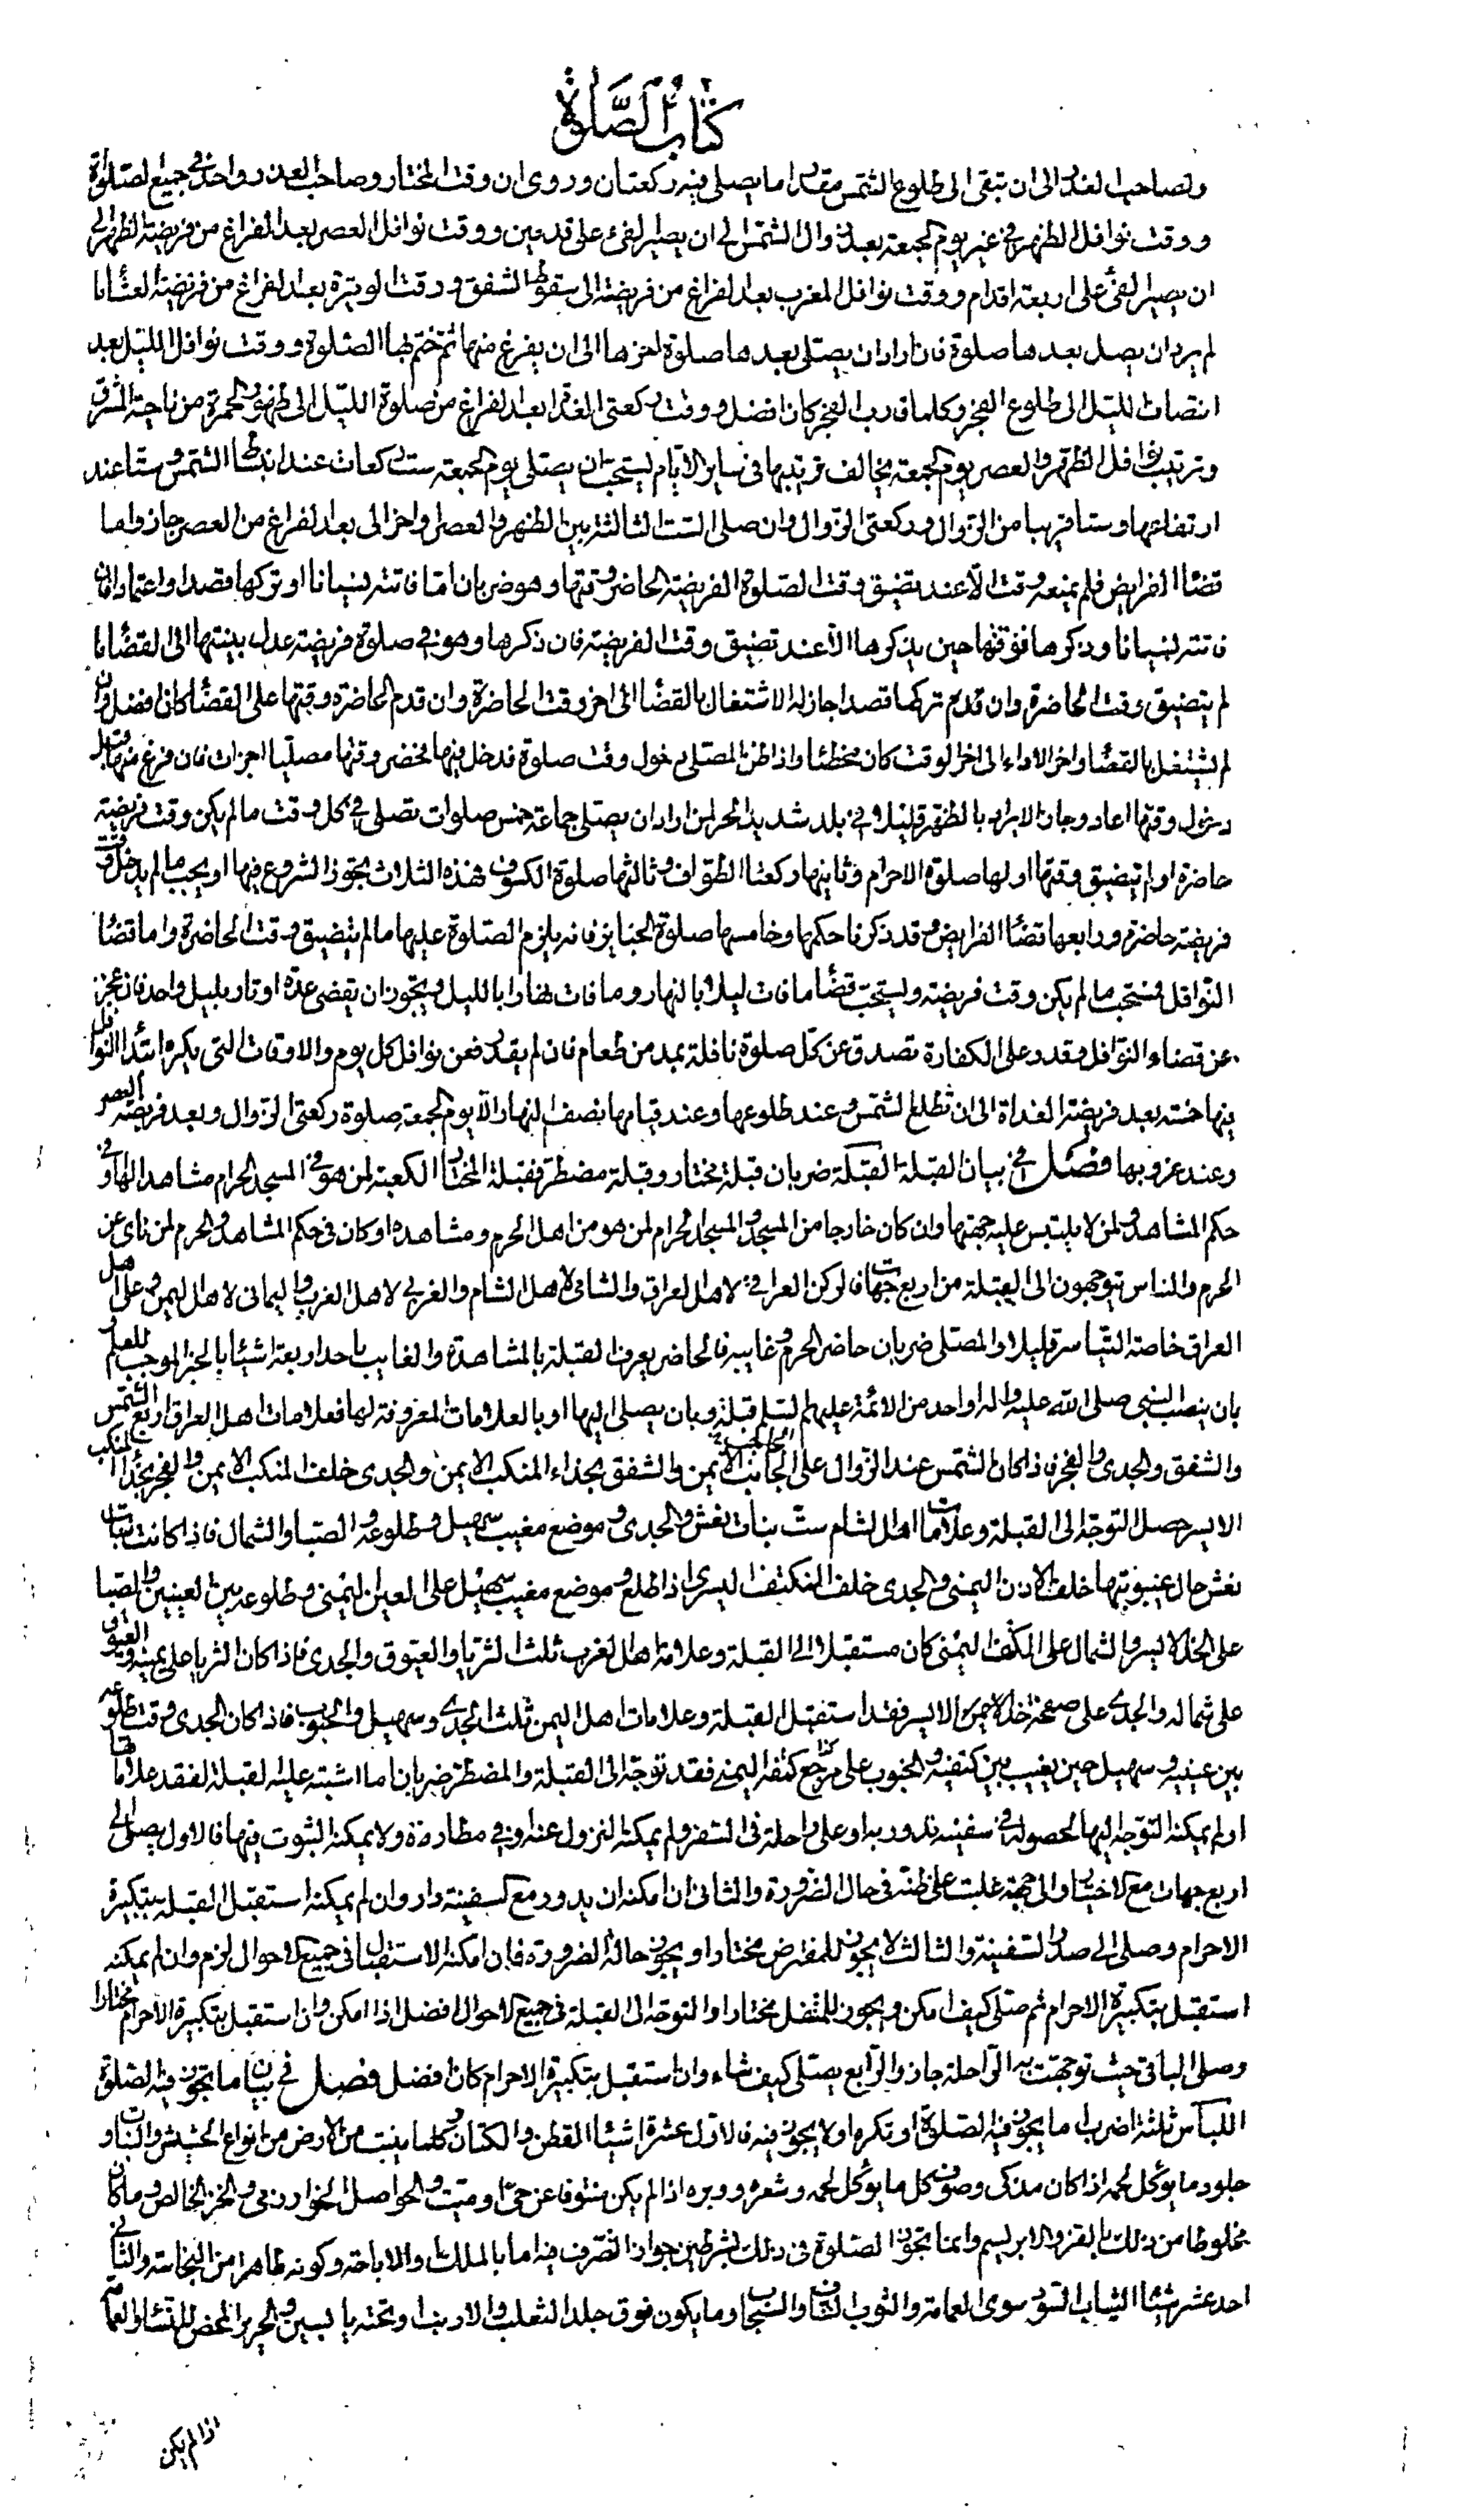 كتاب الصَّلوة
ولصاحب العذر الى ان تبقى الى طلوع الشمس مقدار ما يصلى فيه ركعتان وروى ان وقت المختار وصاحب العذر واحد فى جميع الصلوة
ووقت نوافل الظهر فى غير يوم الجمعة بعد زوال الشمس الى ان يصير الفئ على قدمين ووقت نوافل العصر بعد الفراغ من فريضة الظهر الى
ان يصير الفئ على اربعة اقدام ووقت نوافل المغرب بعد الفراغ من فريضته الى سقوط الشفق ووقت الوتيرة بعد الفراغ من فريضة العشاء ما
لم يرد ان يصل بعدها صلوة فان اراد ان يصلى بعدها صلوة اخرها الى ان يفرغ منها ثم ختم بها الصلوة ووقت نوافل الليل بعد
انتصاف الليل الى طلوع الفجر وكلما قرب الفجر كان افضل ووقت ركعتى الغداة بعد الفراغ من صلوة الليل الى ظهور الحمرة من ناحية المشرق
وترتيب نوافل الظهر والعصر يوم الجمعة يخالف ترتيبها فى ساير الايام يستحب ان يصلى يوم الجمعة ست ركعات عند انبساط الشمس وستا عند
ارتفاعها وستا قريبا من الزوال وركعتى الزوال وان صلى الست الثالثة بين الظهر والعصر او اخر الى بعد الفراغ من العصر جاز واما
قضاء الفرايض فلم يمنعه وقت الا عند تضيق وقت الصلوة الفريضة الحاضر وقتها وهو ضربان اما فاتته نسيانا او تركها قصدا واعتمادا فان
فاتته نسيانا وذكرها فوقتها حين يذكرها الا عند تضيق وقت الفريضة فان ذكرها وهو فى صلوة فريضة عدل بنيتها الى القضاء ما
لم يتضيق وقت الحاضرة وان قدم تركها قصدا جاز له الاشتغال بالقضاء الى اخر وقت الحاضرة وان قدم الحاضرة وقتها على القضاء كان افضل وان
لم يشتغل بالقضاء واخر الاداء الى اخر الوقت كان مخطئا واذا ظن المصلى دخول وقت صلوة فدخل فيها فحضر وقتها مصليا اجزات فان فرغ منها قبل
دخول وقتها اعاد وجاز الابراد بالظهر قليلا فى بلد شديد الحر لمن اراد ان يصلى جماعة خمس صلوات تصلى فى كل وقت ما لم يكن وقت فريضة
حاضرة او لم يتضيق وقتها اولها صلوة الاحرام وثانيها ركعتا الطواف وثالثها صلوة الكسوف فهذه الثلاث يجوز الشروع فيها او يجب ما لم يدخل وقت
فريضة حاضرة ورابعها قضاء الفرايض وقد ذكرنا حكمها وخامسها صلوة الجنايز فانه يلزم الصلوة عليها ما لم يتضيق وقت الحاضرة واما قضاء
النوافل فستحب ما لم يكن وقت فريضة ويستحب قضاء ما فات ليلا بالنهار وما فات نهارا بالليل ويجوز ان يقضى عدة اوتار بليل واحد فان عجز
عن قضاء النوافل وقدر على الكفارة تصدق عن كل صلوة نافلة بمد من طعام فان لم يقدر فعن نوافل كل يوم والاوقات التى يكره ابتداء النوافل
فيها خمسة بعد فريضة الغداة الى ان تطلع الشمس وعند طلوعها وعند قيامها نصف النهار الا يوم الجمعة صلوة ركعتى الزوال وبعد فريضة العصر
وعند غروبها فصل فى بيان القبلة القبلة ضربان قبلة مختار وقبلة مضطر فقبلة المختار الكعبة لمن هو فى المسجد الحرام مشاهدا لها او فى
حكم المشاهد ولمن لا يلتبس عليه جهتها وان كان خارجا من المسجد والمسجد الحرام لمن هو من اهل الحرم ومشاهده او كان فى حكم المشاهد والحرم لمن ناى عن
الحرم والناس يتوجهون الى القبلة من اربع جهات فالركن العراقى لاهل العراق والشامى لاهل الشام والغربى لاهل الغرب واليمانى لاهل اليمن وعلى اهل
العراق خاصة التياسر قليلا والمصلى ضربان حاضر الحرم وغايبه فالحاضر يعرف القبلة بالمشاهدة والغايب باحد اربعة اشياء بالخبر الموجب للعلم او
بان ينصب النبى صلى الله عليه واله او احد من الائمة عليهم السلم قبلة وبان يصلى اليها او بالعلامات المعروفة لها فعلامات اهل العراق اربع الشمس
والشفق والجدى والفجر فاذا كان الشمس عند الزوال على الجانب الايمن والشفق بحذاء المنكب الايمن والجدى خلف المنكب الايمن والفجر بحذاء المنكب
الايسر حصل التوجه الى القبلة وعلامات اهل الشام ست بنات نعش والجدى وموضع مغيب سهيل وطلوعه والصبا والشمال فاذا كانت بنات
نعش حال غيبوبتها خلف الاذن اليمنى والجدى خلف المنكتف اليسرى اذا طلع وموضع مغيب سهيل على العين اليمنى وطلوعه بين العينين والصبا
على الخد الايسر والشمال على الكتف اليمنى كان مستقبلا الى القبلة وعلامة اهل الغرب ثلث الثريا والعيوق والجدى فاذا كان الثريا على يمينه والعيوق
على شماله والجدى على صفحة خده الايسر فقد استقبل القبلة وعلامات اهل اليمن ثلث الجدى وسهيل والجنوب فاذا كان الجدى وقت طلوعه
بين عينيه وسهيل حين يغيب بين كتفيه والجنوب على مرجع كتفه اليمنى فقد توجه الى القبلة والمضطر ضربان اما اشتبه عليه القبلة لفقد علاماتها
او لم يمكنه التوجه اليها لحصوله فى سفينة تدور به او على راحلة فى السفر ولم يمكنه النزول عنه او فى مطاردة ولا يمكنه الثبوت فيها فالاول يصلى الى
اربع جهات مع الاختيار والى جهة غلبت على ظنه فى حال الضرورة والثانى ان امكنه ان يدور مع السفينة دار وان لم يمكنه استقبل القبلة بتكبيرة
الاحرام وصلى الى صدر السفينة والثالث لا يجوز للمفترض مختارا ويجوز حالة الضرورة فان امكنه الاستقبال فى جميع الاحوال لزم وان لم يمكنه
استقبل بتكبيرة الاحرام ثم صلى كيف امكن ويجوز للمتنفل مختارا والتوجه الى القبلة فى جميع الاحوال افضل اذا امكن وان استقبل بتكبيرة الاحرام مختارا
وصلى الباقى حيث توجهت به الراحلة جاز والرابع يصلى كيف شاء وان استقبل بتكبيرة الاحرام كان افضل فصل فى بيان ما تجوز فيه الصلوة
اللباس ثلثة اضرب اما يجوز فيه الصلوة او تكره او لا يجوز فيه فالاول عشرة اشياء القطن والكتان وكلما ينبت من الارض من انواع الحشيش والنبات و
جلود ما يؤكل لحمه اذا كان مذكى وصوف كل ما يؤكل لحمه وشعره ووبره اذا لم يكن منتوفا عن حى او ميت والحواصل الخوارزمى والخز الخالص وما كان
مخلوطا من ذلك بالقز والابريسم وانما تجوز الصلوة فى ذلك بشرطين جواز التصرف فيه اما بالملك والاباحة وكونه طاهرا من النجاسة والثانى
احد عشر شيئا الثياب السود سوى العمامة والثوب الشاف والسنجاب وما يكون فوق جلد الثعلب والارنب او تحته يا لبسين والحرير المحض للنساء والعامة
اذا لم يكن